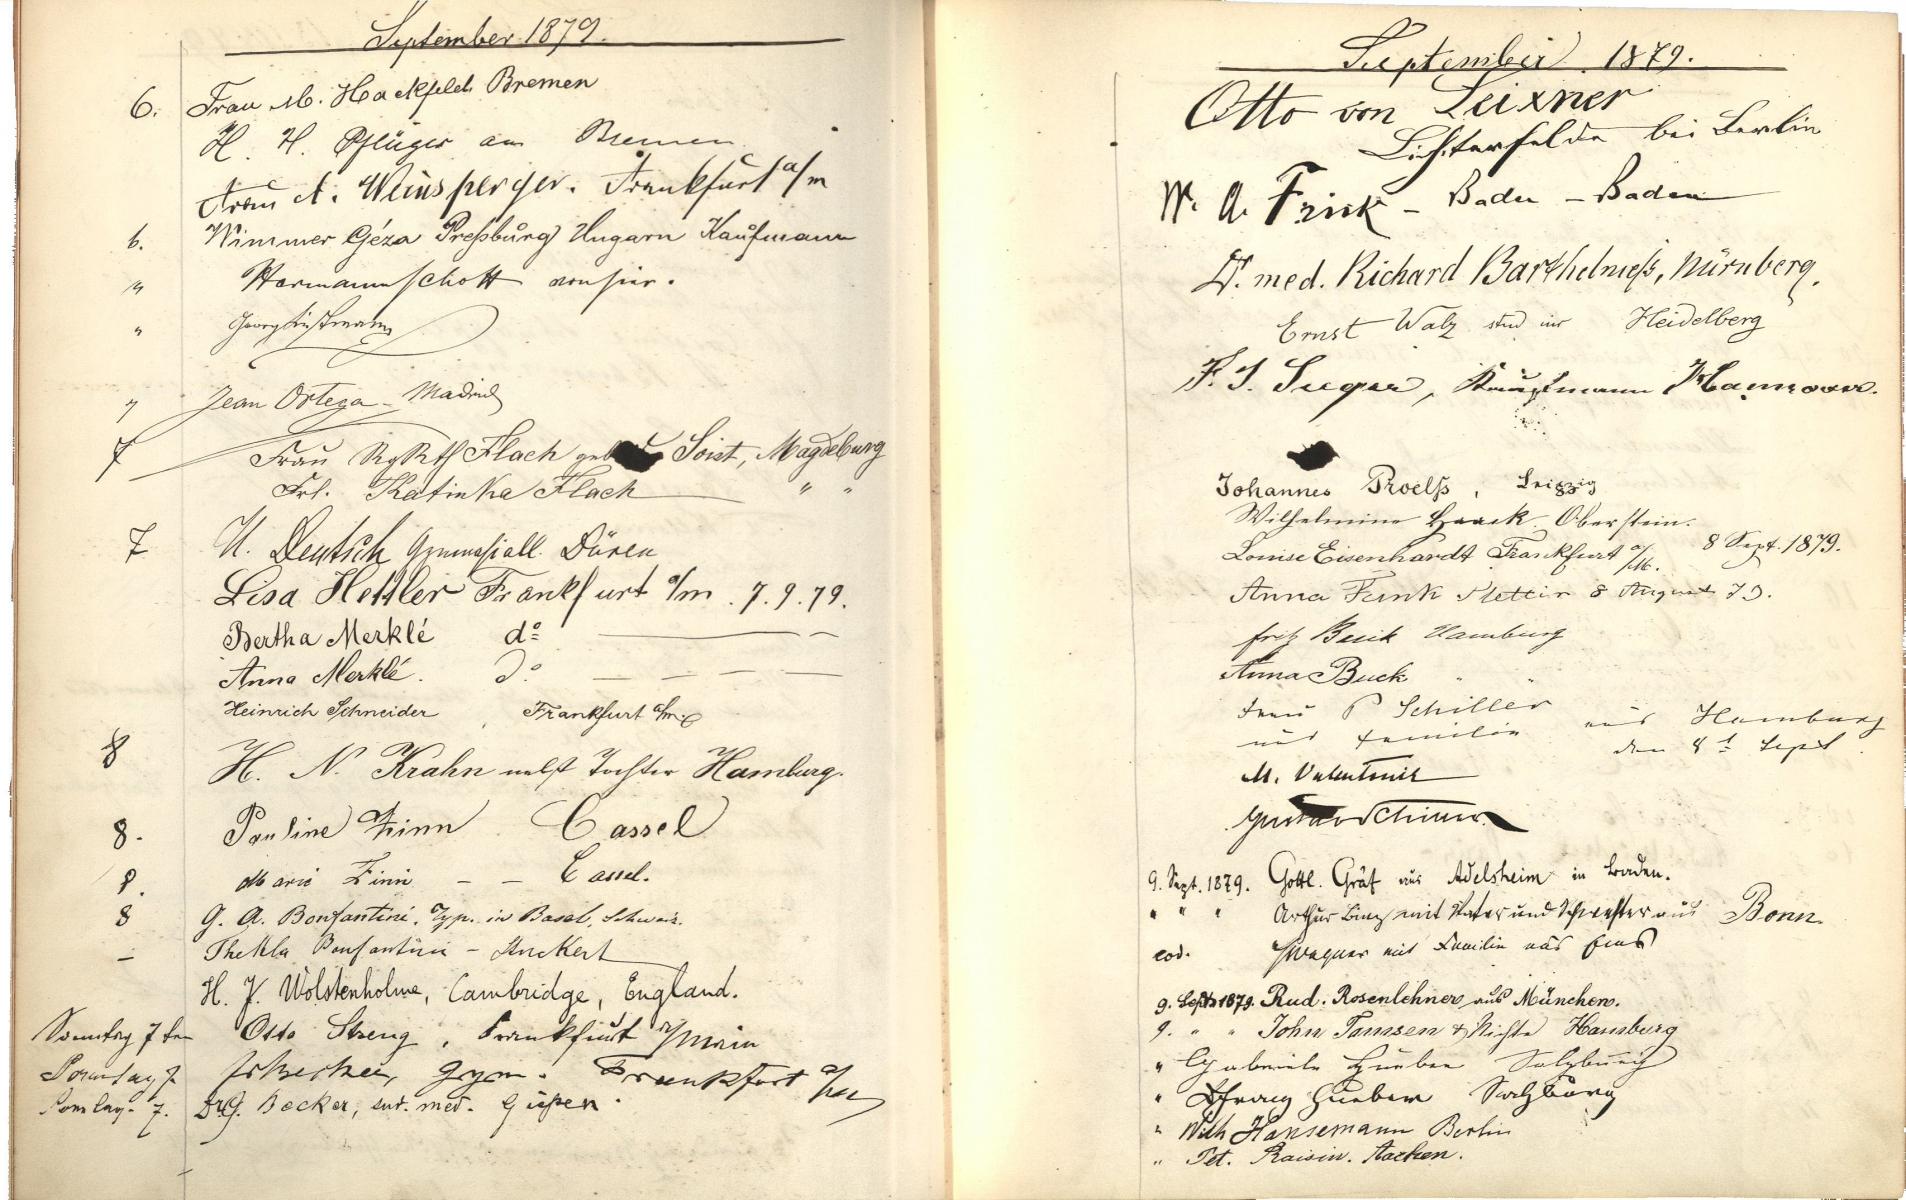 September 1879.
6. Frau M. Hackfeld Bremen
H. H. Pflüger aus Bremen
Frau A. Weinsperger. Frankfurt a/m
6. Wimmer Géza Preßburg Ungarn Kaufmann
" Hermann Schott von hier.
" Georg
" Jean Ortega - Madrid
7 Frau Flach geb. Soist, Magdeburg
Frl. Katinka Flach " "
7 U. Deutsch Gymnasiall. Düren
Lisa Hettler Frankfurt a/m. 7.9.79.
Bertha Merklé do
Anna Merklé. do
Heinrich Schneider, Frankfurt a/m.
8 H. N. Krahn nebst Tochter Hamburg.
8. Pauline Zinn Cassel
8. Marie Zinn - - Cassel.
8 G. A. Bonfantini, Typ. in Basel, Schweiz.
- Thekla Bonfantini - Anckert
H. J. Wolstenholme, Cambridge, England.
Sonntag 7ten Otto Streng, Frankfurt a/Main
Sonntag 7 Gym. Frankfort a/M
Sonntag. 7. Becker, med. Gießen.
September 1879.
Otto von Leixner
Lichterfelde bei Berlin
W. A. Frick - Baden - Baden
Dr. med. Richard Barthelmeß, Nürnberg.
Ernst Walz stud iur Heidelberg
F. J. Seeger, Kaufmann Hannover.
Johannes Proelß, Leipzig
Wilhelmine Haack Oberstein.
Louise Eisenhardt Frankfurt a/M. 8 Sept. 1879.
Anna Funk Stettin 8 August 79.
Fritz Buck Hamburg
Anna Buck " "
Frau P Schiller
und Familie aus Hamburg
den 8t Sept.
M. Valentiner
Gustav
9. Sept. 1879. Gottl. Gräf aus Adelsheim in Baden.
" " " Arthur mit Vater und Schwester aus Bonn.
eod. Wagner mit Familie aus Ems
9. Sept 1879. Rud. Rosenlehner aus München.
9. " " John Janssen & Nichte Hamburg
" Gabriele Hueber Salzburg
" Franz Hueber Salzburg
" Wilh Hansemann Berlin
" Pet. Kaisin. Aachen.